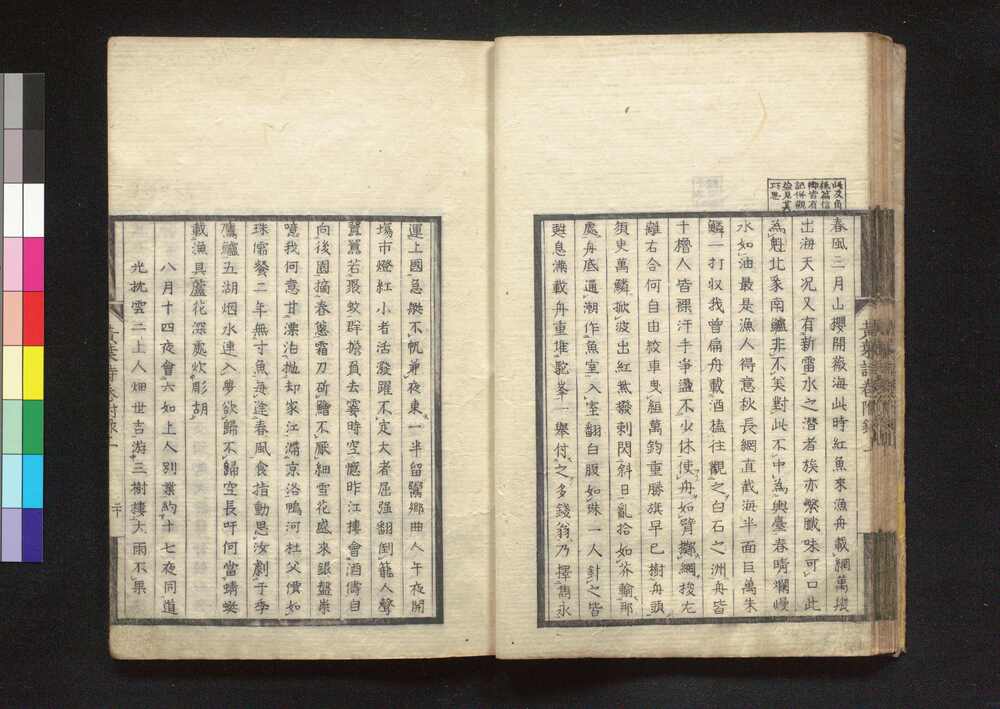 此及角
後篇信
郷當有
記伴觀
益見其
巧思
春風三月山櫻開薇海此時紅魚來漁舟載網萬堆
出海天况又有新雷水之潜者族亦繁臘味可口此
為魁北豕南鱸非不美對此不中為輿臺春晴瀾慢
水如油最是漁人得意秋長網直截海半面巨萬朱
鱗一打収我曾扁舟載酒榼往觀之白石之洲舟皆
十櫓人皆裸汗手爭盪不少休使舟如臂擲網梭左
離右合何自由絞車曳組萬鈞重勝旗早已樹舟頭
須史萬鱗掀波出紅煞撥剌閃斜日亂拾如芥輸那
處舟底通潮作魚室入室翻白腹如珠一人針之皆
甦息滿載舟重堆駝峯一舉付之多錢翁乃擇雋永
運上國急槳不帆兼夜東一半留鬻郷曲人午夜開
場市燈紅小者活潑躍不定大者屈强翻倒籠人聲
囂囂若聚蚊群擔負去霎時空憶昨江摟會酒儔自
向後園摘春蔥霜刀斫鱠不厭細雪花盛來銀盤崇
噫我何意甘漂泊抛却家江滯京洛鴨河杜父價如
珠儒餐二年無寸魚每逢春風食指動思汝劇于季
鷹鱸五湖烟水連入夢欲歸不歸空長吁何當蜻蜒
載漁具蘆花深處炊彫胡
八月十四夜會六如上人別業約十七夜同道
光抌雲二上人畑世吉游三樹樓大雨不果
黄葉詩卷附録一